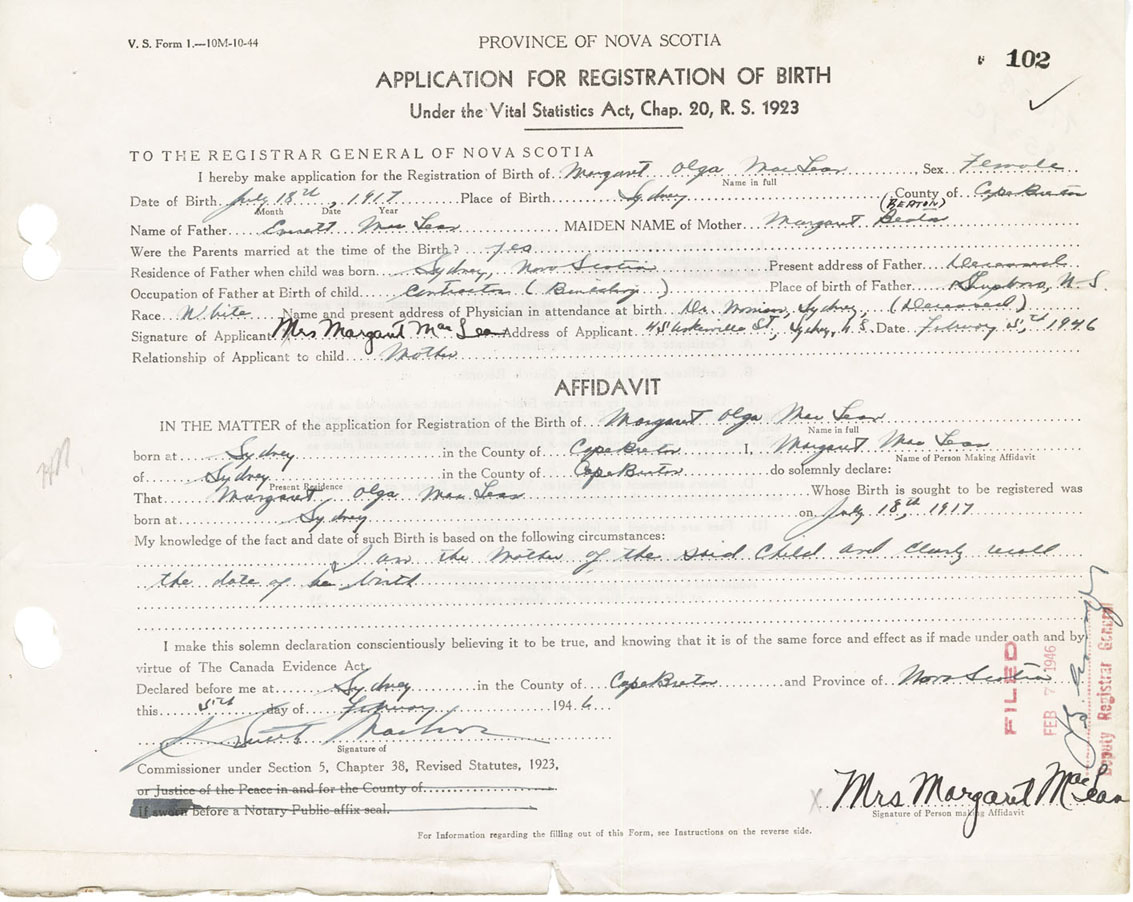 V. S. Form 1.—10M-10-44
PROVINCE OF NOVA SCOTIA
102
APPLICATION FOR REGISTRATION OF BIRTH
Under the Vital Statistics Act, Chap. 20, R. S. 1923
TO THE REGISTRAR GENERAL OF NOVA SCOTIA
I hereby make application for the Registration of Birth of Margaret Olga MacLean, Sex Female
Name in full
Date of Birth July 18th, 1917 Place of Birth Sydney County of Cape Breton
Month Date Year (BEATON)
Name of Father Emmett MacLean MAIDEN NAME of Mother Margaret Beaton
Were the Parents married at the time of the Birth? yes
Residence of Father when child was born Sydney, Nova Scotia Present address of Father Deceased
Occupation of Father at Birth of child Contractor Place of birth of Father N.S.
Race White Name and present address of Physician in attendance at birth Dr. Sydney, (Deceased)
Signature of Applicant Mrs Margaret MacLean Address of Applicant St, Sydney, N.S. Date 1946
Relationship of Applicant to child Mother
AFFIDAVIT
IN THE MATTER of the application for Registration of the Birth of Margaret Olga MacLean
Name in full
born at Sydney in the County of Cape Breton I, Margaret MacLean
Name of Person Making Affidavit
of Sydney in the County of Cape Breton do solemnly declare:
Present Residence
That Margaret Olga MacLean Whose Birth is sought to be registered was
born at Sydney on July 18th, 1917
My knowledge of the fact and date of such Birth is based on the following circumstances:
I am the Mother of the said Child and clearly recall
the date of her birth
I make this solemn declaration conscientiously believing it to be true, and knowing that it is of the same force and effect as if made under oath and by
virtue of The Canada Evidence Act.
Declared before me at Sydney in the County of Cape Breton and Province of Nova Scotia
this day of 1946
Signature of
Commissioner under Section 5, Chapter 38, Revised Statutes, 1923,
or Justice of the Peace in and for the County of
If sworn before a Notary Public affix seal.
FILED
FEB 7 1946
Deputy Registrar General
X Mrs Margaret MacLean
Signature of Person making Affidavit
For Information regarding the filling out of this Form, see Instructions on the reverse side.